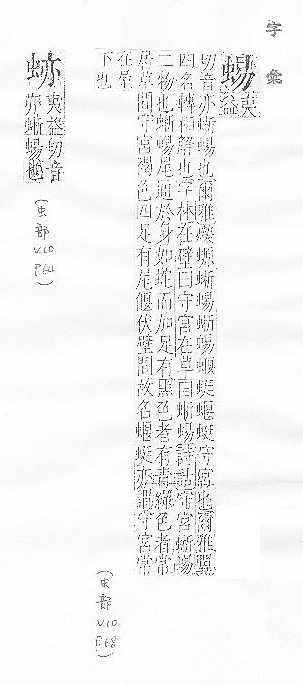 字彙
蜴
夷
益
切音亦蜥蜴也爾雅蠑螈蜥蜴蜥蜴蝘蜓蝘蜓守宮也爾雅翼
四名轉相解也字林在壁曰守宮在草曰蜥蜴詩詁守宮蜥蜴
二物也蜥蜴尾通於身如蛇而加足有黑色者有青綠色者常
居草間守宮褐色四足有尾偃伏壁間故名蝘蜓亦謂守宮常
在屋
下也
(虫部 V.10 P.68)
夷益切音
亦蜥蜴也
(虫部 V.10 P.64)